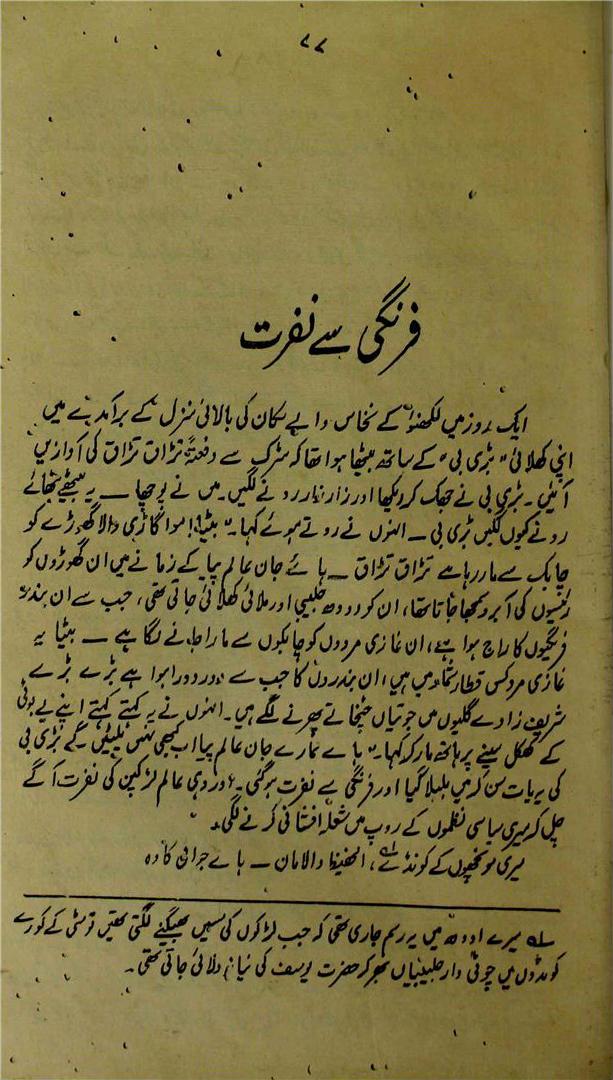 ۸۷
فرنگی سے نفرت
ایک روز میں لکھنؤ کے نخاس والے مکان کی بالائی منزل کے برآمدے میں
اپنی کھلائی "بڑی بی" کے ساتھ بیٹھا ہوا تھا کہ سڑک سے دفعۃً تڑاق تڑاق کی آوازیں
آئیں۔ بڑی بی نے جھک کر دیکھا اور زار زار رونے لگیں۔ میں نے پوچھا — یہ بیٹھے بٹھائے
رونے کیوں لگیں بڑی بی — انہوں نے روتے ہوئے کہا۔ "بیٹا! موا گاڑی والا گھوڑے کو
چابک سے مار رہا ہے تڑاق تڑاق — ہائے جان عالم پیا کے زمانے میں ان گھوڑوں کو
رئیسوں کی آبرو سمجھا جاتا تھا، ان کو دودھ جلیبی اور ملائی کھلائی جاتی تھی، جب سے ان بندر
فرنگیوں کا راج ہوا ہے، ان غازی مردوں کو چابکوں سے مارا جانے لگا ہے — بیٹا یہ
غازی مرد کس قطار شمار میں ہیں، ان بندروں کا جب سے دور دورا ہوا ہے بڑے بڑے
شریف زادے گلیوں میں جوتیاں چٹخاتے پھرنے لگے ہیں۔ انہوں نے یہ کہتے کہتے اپنے بے بوٹی
کے کھکل سینے پر ہاتھ مار کر کہا۔ "ہائے ہمارے جان عالم پیا اب کبھی نہیں پلٹیں گے بڑی بی
کی یہ بات سن کر میں بلبلا گیا اور فرنگی سے نفرت ہو گئی۔ اور وہی عالم لڑکپن کی نفرت آگے
چل کر میری سیاسی نظموں کے روپ میں شعلہ افشانی کرنے لگی۔
میری مونچھوں کے کونڈے ۱؎، الحفیظ والامان — ہائے جوانی کا وہ
۱؎ میرے اودھ میں یہ رسم جاری تھی کہ جب لڑکوں کی مسیں بھیگنے لگتی تھیں تو مٹی کے کورے
کونڈوں میں چوٹی دار جلیبیاں بھر کر حضرت یوسف کی نیاز دلائی جاتی تھی۔